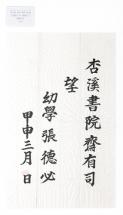 杏溪書院齋有司
望
幼學張德必
甲申三月 日